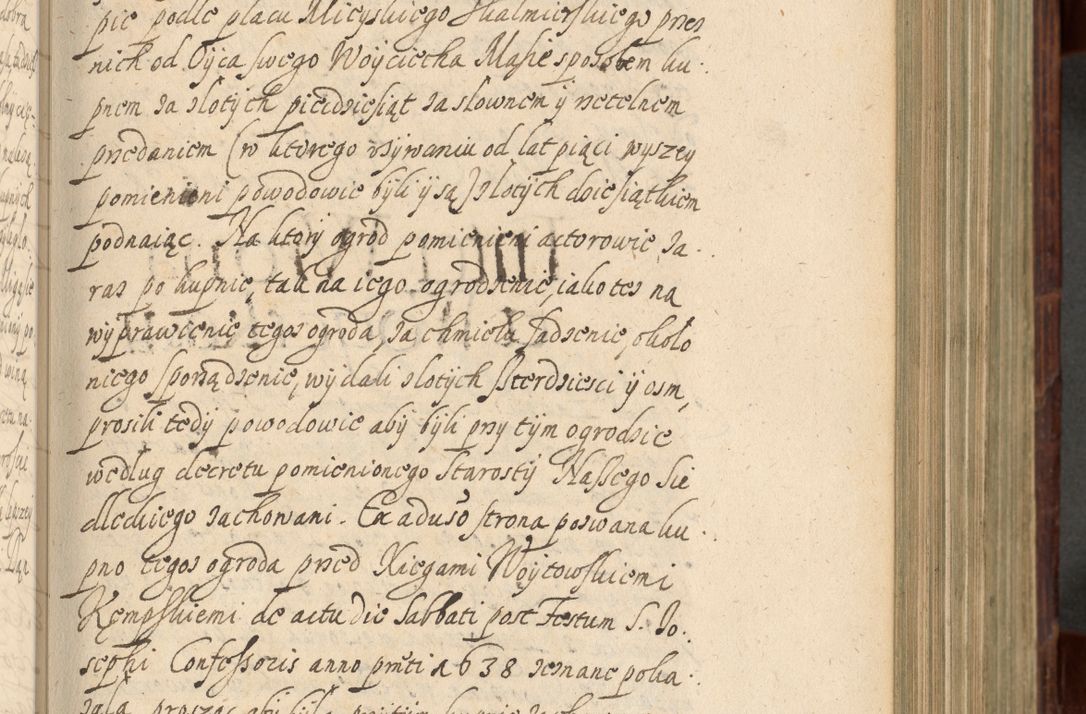 pie podle placu Mieyskiego Skalmierskiego przez
nich od Oyca swego Woyciecha Masie sposobem ku
pnem za złotych piecdziesiąt za słownem y rzetelnem
przedaniem (w ktorego vzywaniu od lat piąci wyszey
pomienieni powodowie byli y są) złotych dziesiątkiem
podnaiąc. Na ktory ogrod pomienieni actorowie za
raz po kupnie, tak na iego ogrodzenie, iako tez na
wyprawienie tegoz ogroda, za chmielu sadzenie, około
niego sporządzenie, wydali złotych szterdziesci y osm,
prosili tedy powodowie aby byli przy tym ogrodzie
według decretu pomienionego Starosty Naszego Sie
dleckiego zachowani. Ex aduso strona pozwana ku
pno tegoz ogroda przed Xięgami Woytowskiemi
Kęmpskiemi de actu die Sabbati post Festum S. Jo
sephi Confessoris anno prneti 1638 zeznane poka
zała, prosząc aby była przy tym kupnie zacho